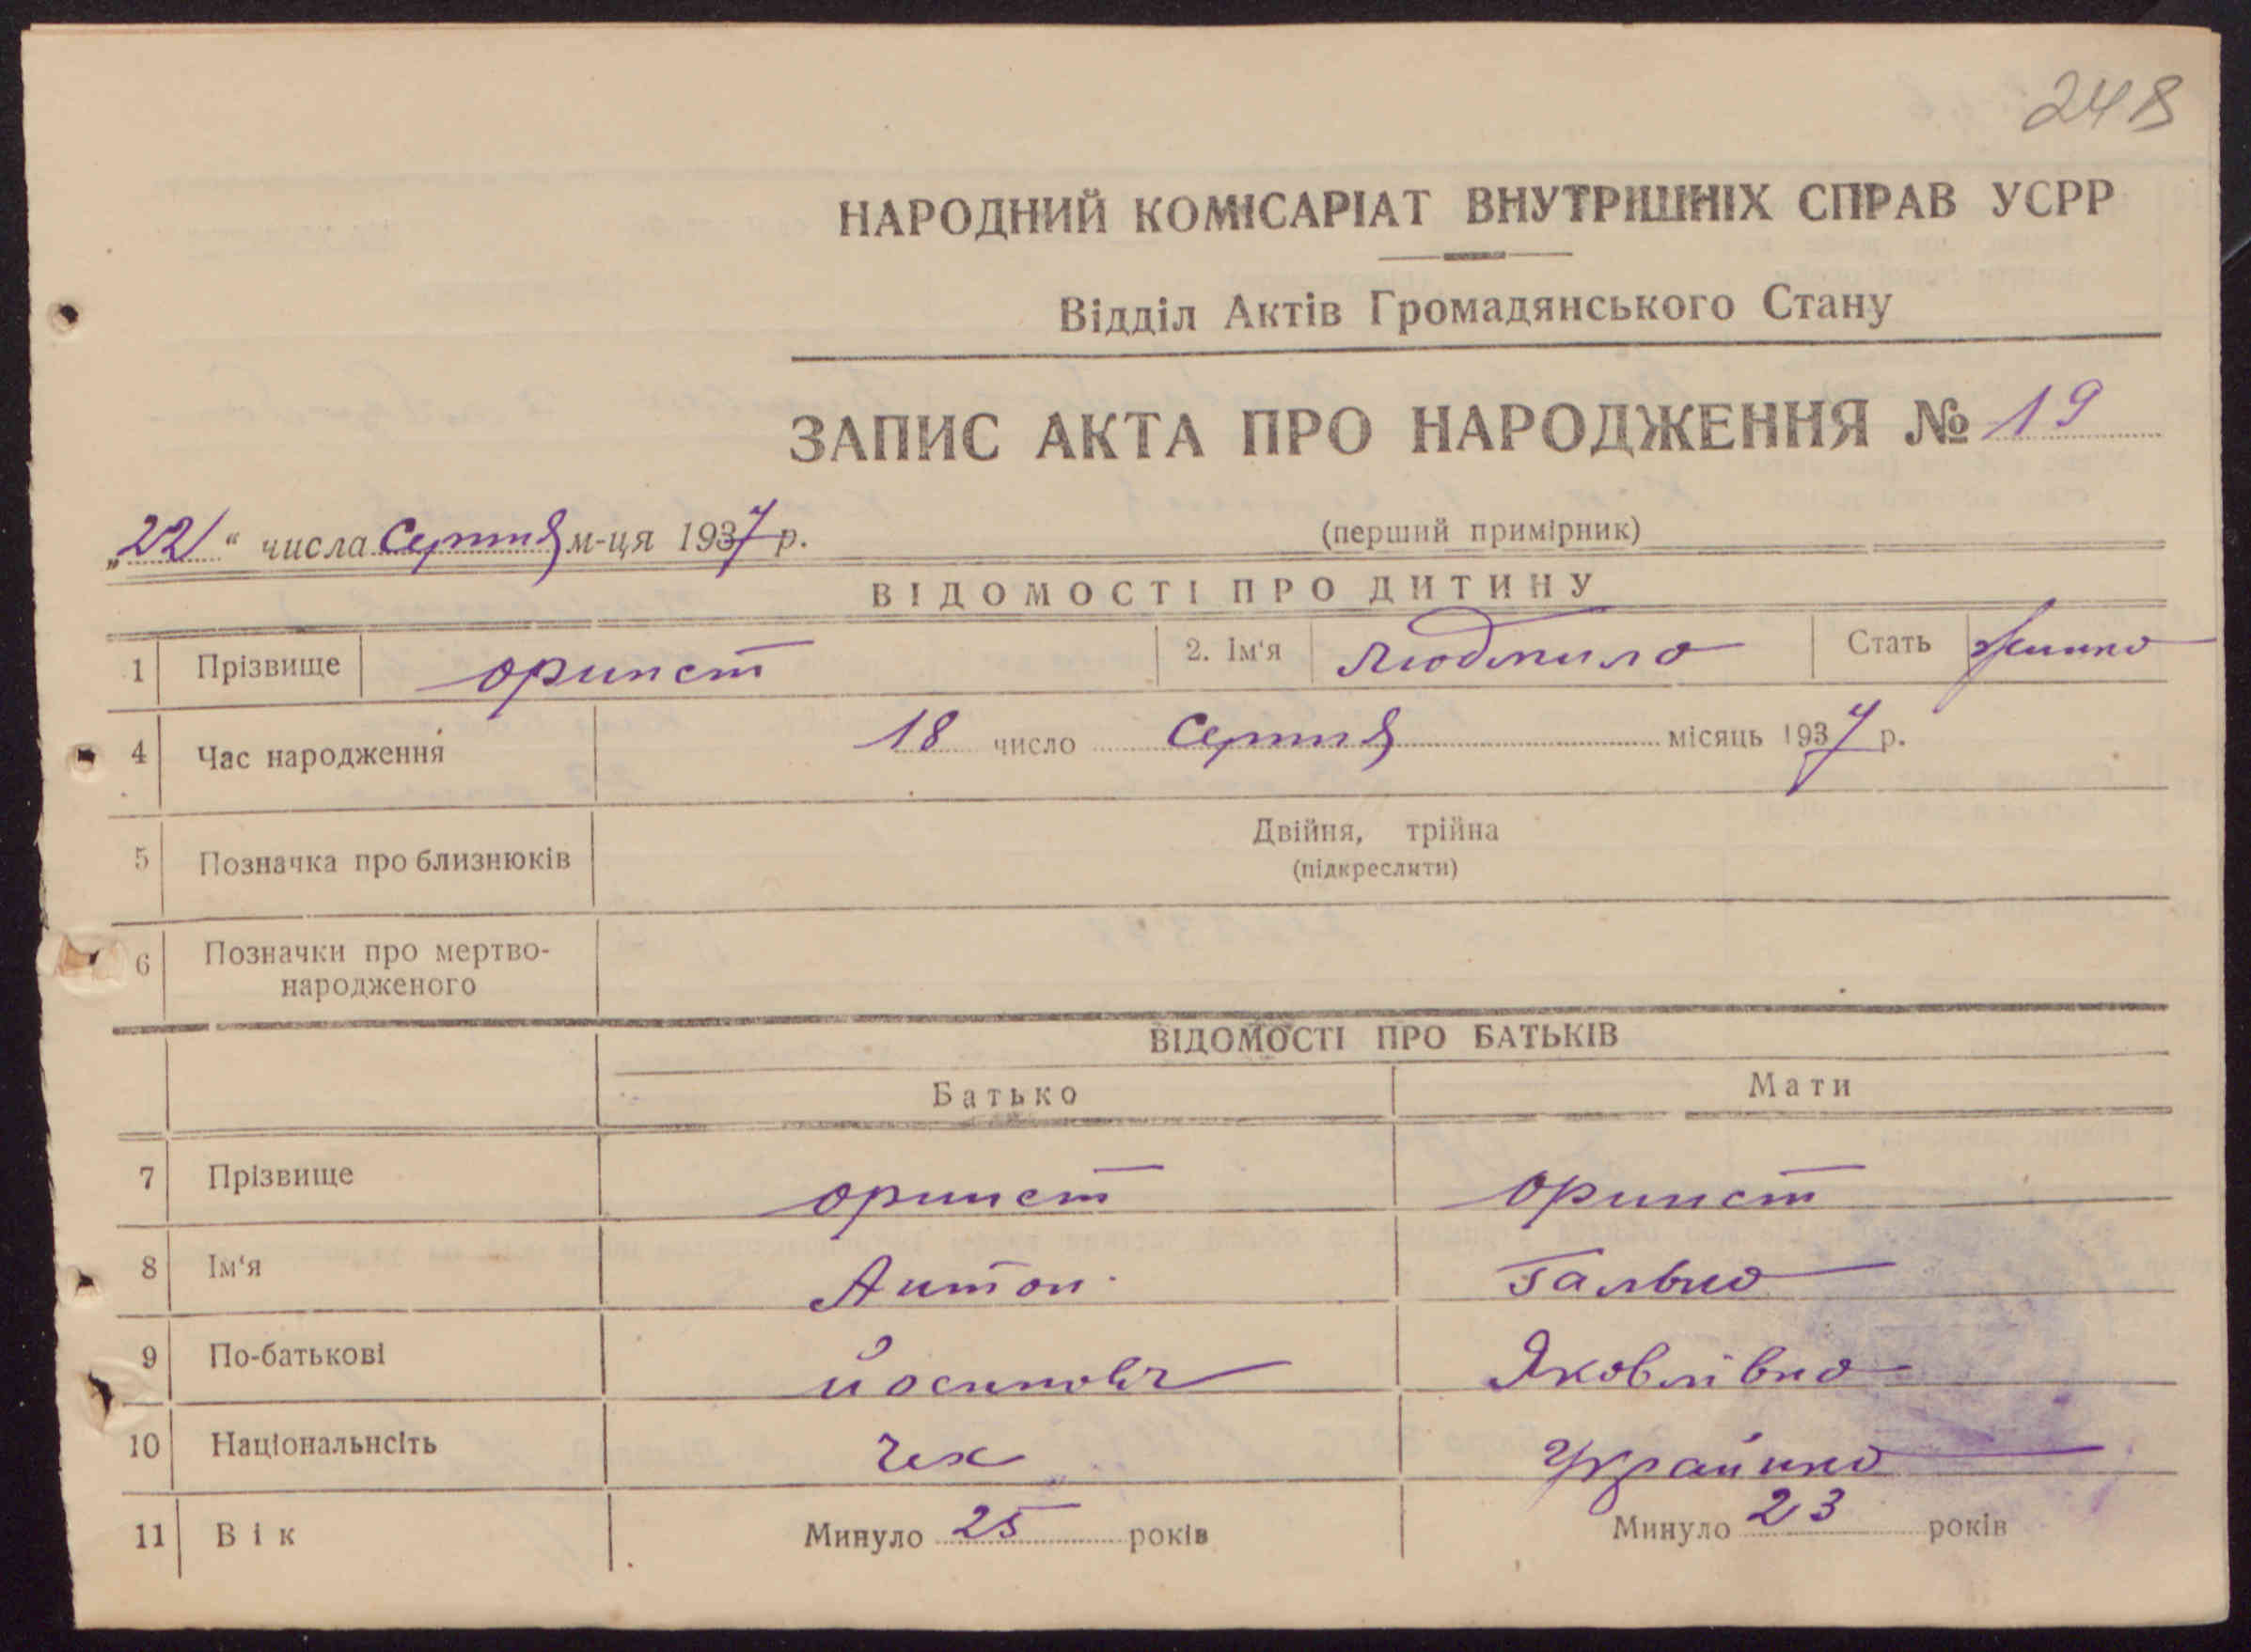 248
НАРОДНИЙ КОМІСАРІАТ ВНУТРІШНІХ СПРАВ УСРР
Відділ Актів Громадянського Стану
ЗАПИС АКТА ПРО НАРОДЖЕННЯ № 19
„22“ числа Серпня м-ця 1937 р.
(перший примірник)
ВІДОМОСТІ ПРО ДИТИНУ
1 Прізвище 2. Ім'я Людмила Стать Жінка
4 Час народження 18 число Серпня місяць 1937 р.
5 Позначка про близнюків Двійня, трійна
(підкреслити)
6 Позначки про мертво-
народженого
ВІДОМОСТІ ПРО БАТЬКІВ
Батько Мати
7 Прізвище
8 Ім'я Антон
9 По-батькові Йосипович Яковлівна
10 Національнсіть Чех Українка
11 Вік Минуло 25 років Минуло 23 років